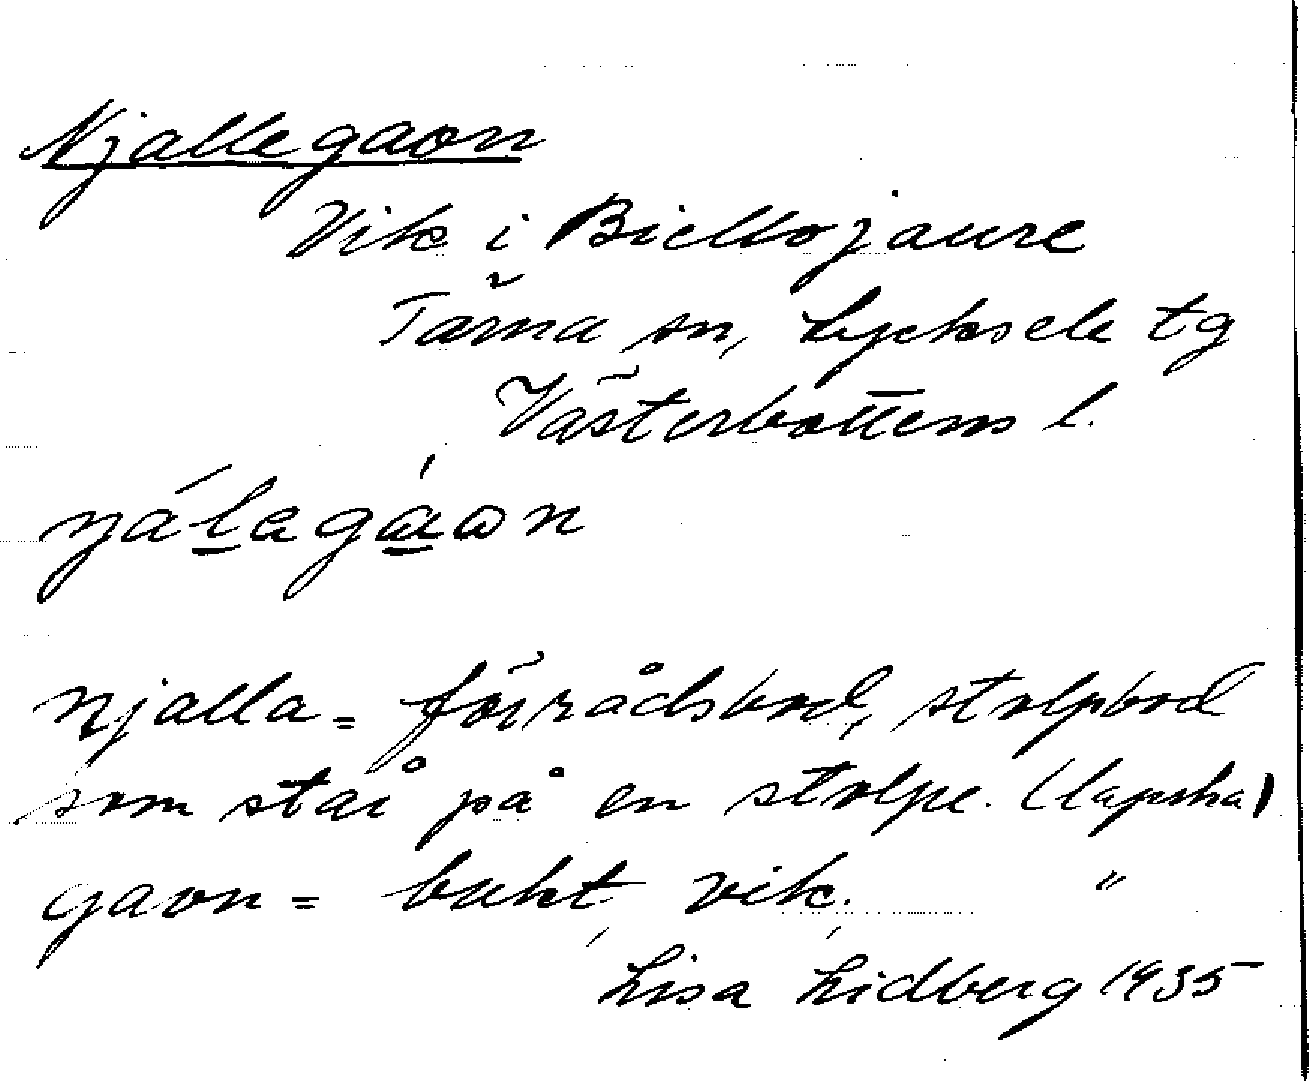 Njallegaon
Vik i Biellojaure
Tärna sn, Lycksele tg
Västerbottens l.
njalla = förrådsbod, stolpbod
som står på en stolpe. (lapska)
gaon = bukt, vik. "
Lisa Lidberg 1935